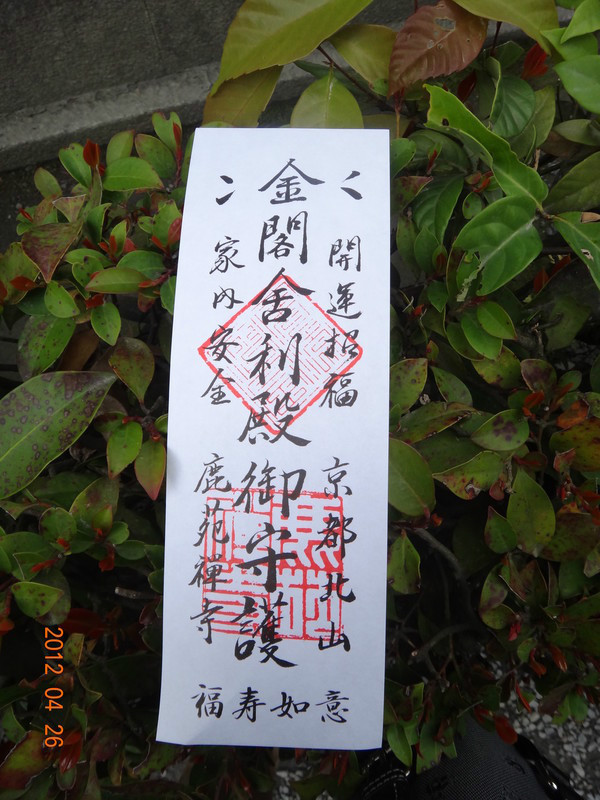 開運招福
京都北山
金閣舎利殿御守護
家内安全
鹿苑禅寺
福寿如意
2012 04 26